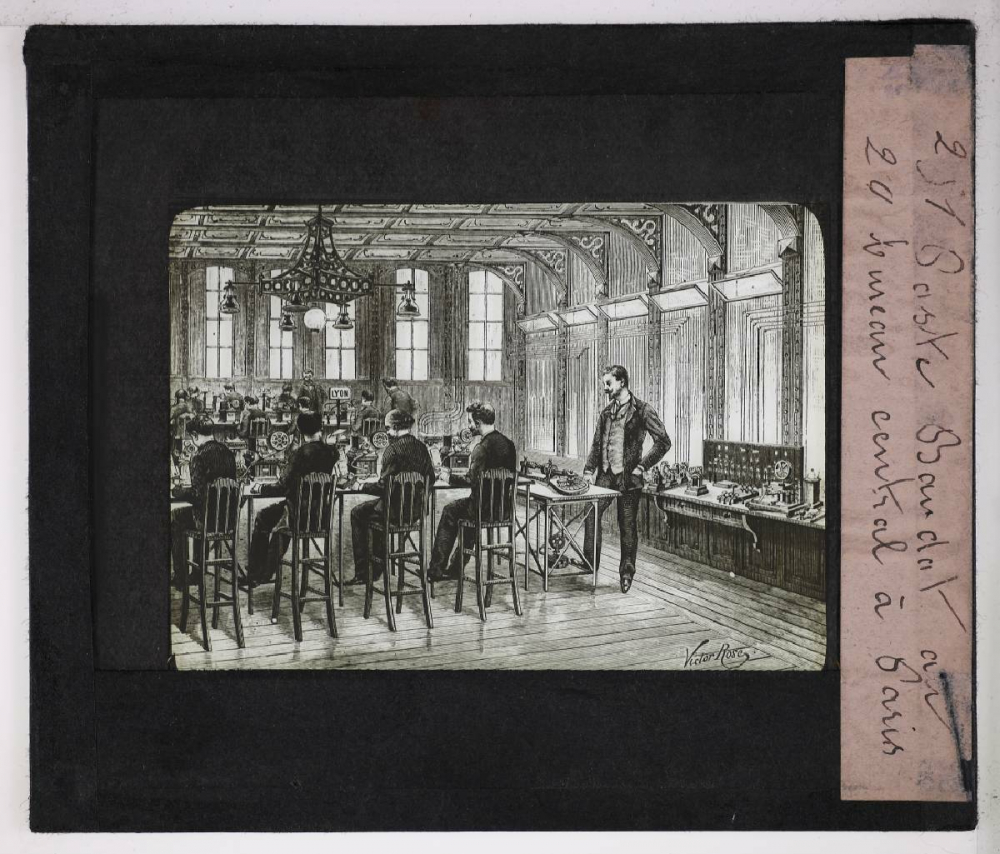 LYON
Victor Rose
251 Poste Baudot au
20 bureau central à Paris